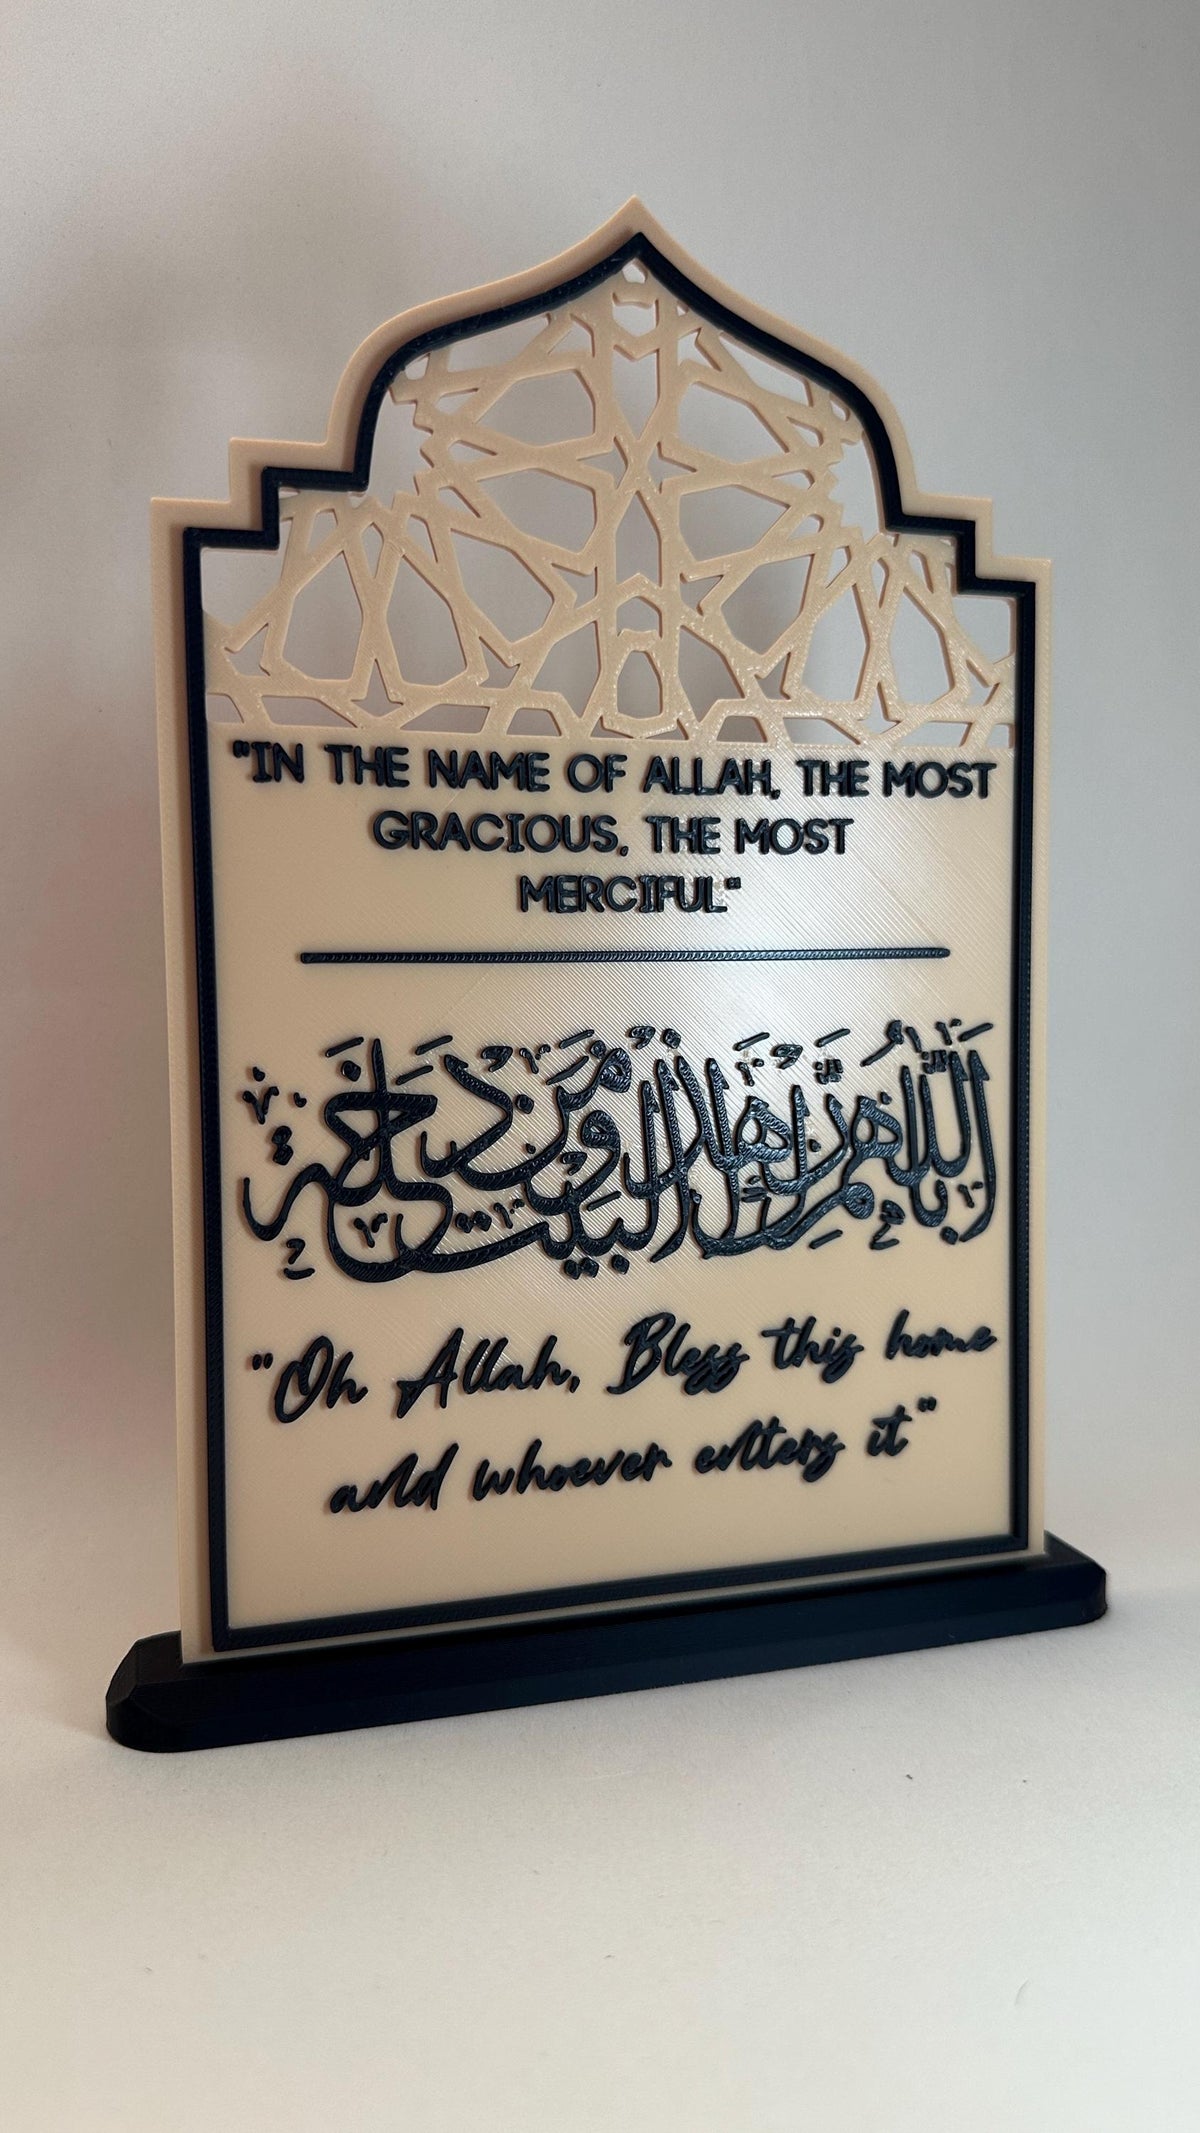 "IN THE NAME OF ALLAH, THE MOST
GRACIOUS, THE MOST
MERCIFUL"
اَللّٰهُمَّ بَارِكْ هٰذَا الْبَيْتَ وَمَنْ دَخَلَ
"Oh Allah, Bless this home
and whoever enters it"